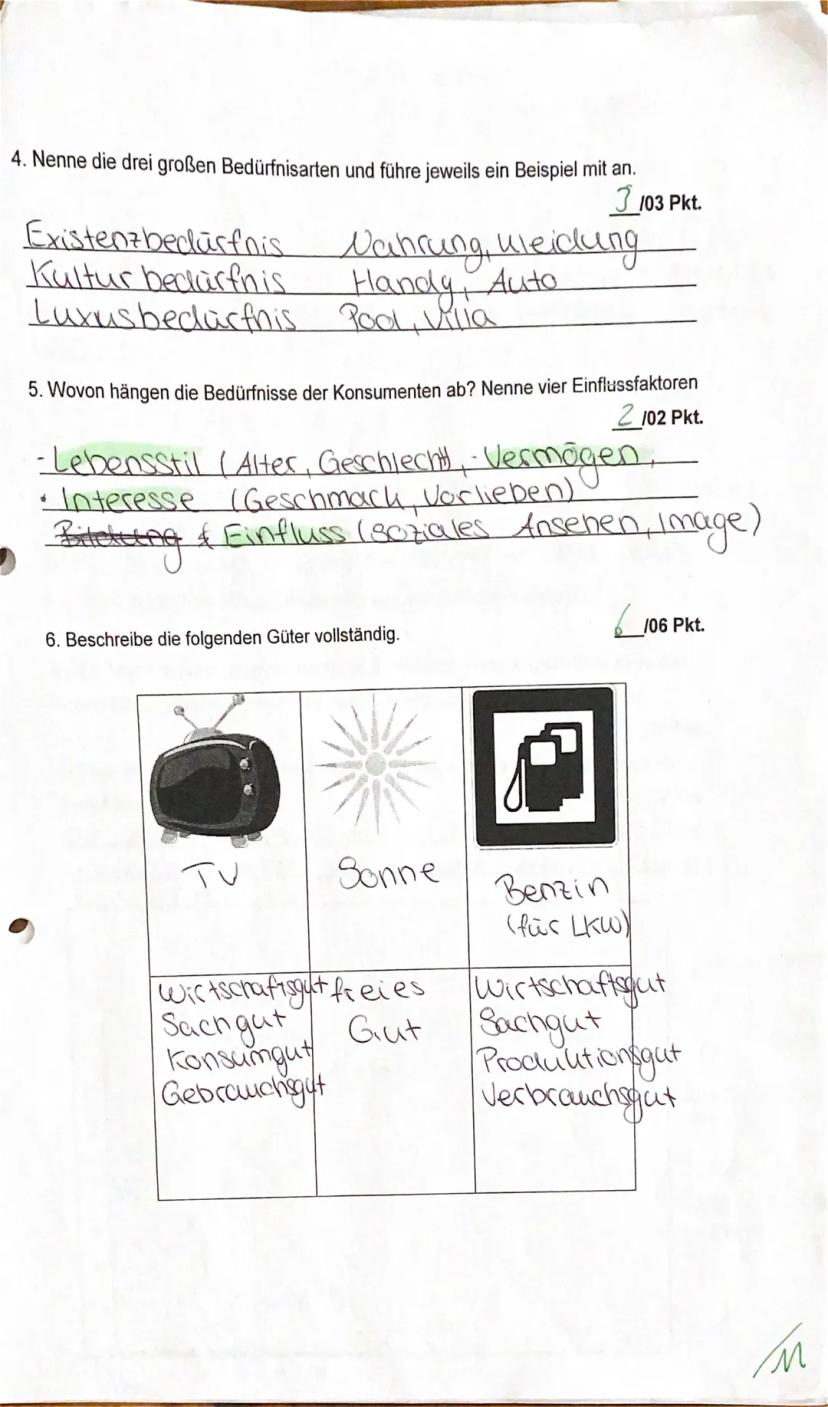 4. Nenne die drei großen Bedürfnisarten und führe jeweils ein Beispiel mit an.
3 /03 Pkt.
Existenzbedürfnis Nahrung, Kleidung
Kulturbedürfnis Handy, Auto
Luxusbedürfnis Pool, Villa
5. Wovon hängen die Bedürfnisse der Konsumenten ab? Nenne vier Einflussfaktoren
2 /02 Pkt.
- Lebensstil (Alter, Geschlecht), - Vermögen,
• Interesse (Geschmack, Vorlieben)
Bildung & Einfluss (soziales Ansehen, Image)
6. Beschreibe die folgenden Güter vollständig.
6 /06 Pkt.
TV
Sonne
Benzin
(für LKW)
Wirtschaftsgut
Sachgut
Konsumgut
Gebrauchsgut
freies
Gut
Wirtschaftsgut
Sachgut
Produktionsgut
Verbrauchsgut
/11